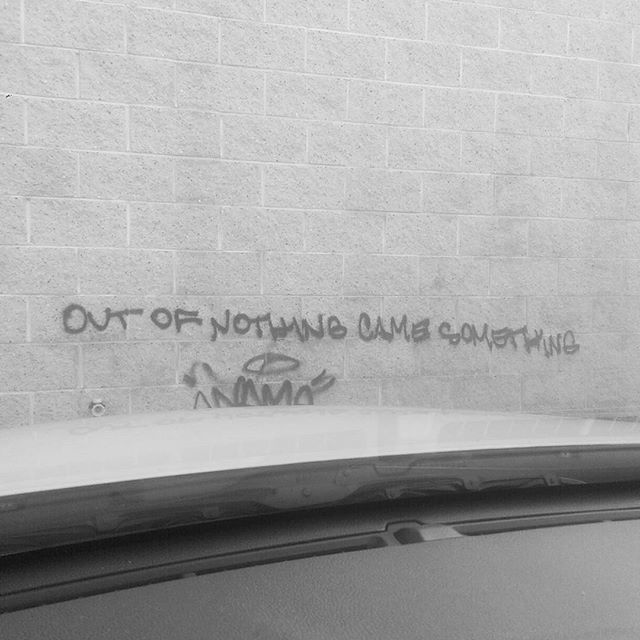 OUT OF NOTHING CAME SOMETHING